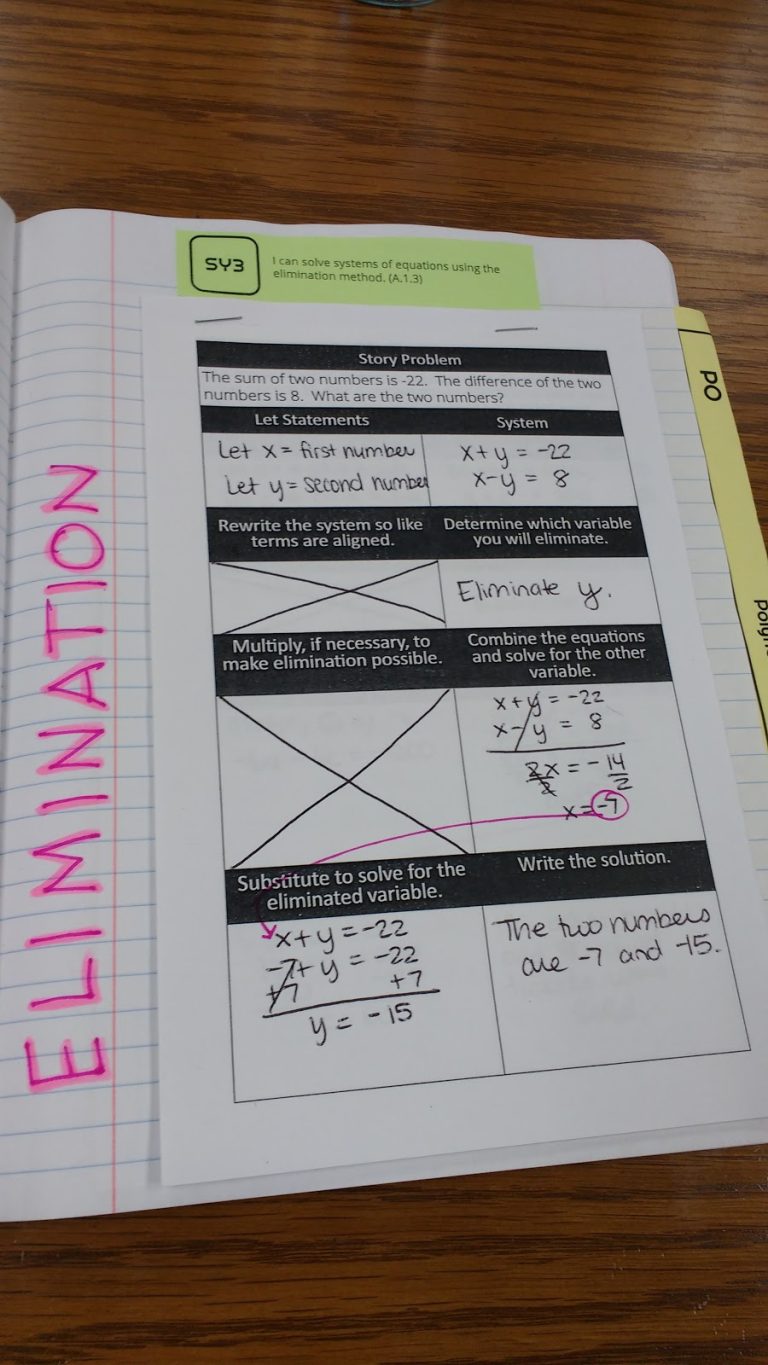 SY3
I can solve systems of equations using the
elimination method. (A.1.3)
PO
ELIMINATION
Story Problem
The sum of two numbers is -22. The difference of the two
numbers is 8. What are the two numbers?
Let Statements
Let x = first number
Let y = second number
System
x + y = -22
x - y = 8
Rewrite the system so like
terms are aligned.
Determine which variable
you will eliminate.
Eliminate y.
Multiply, if necessary, to
make elimination possible.
Combine the equations
and solve for the other
variable.
x + y = -22
x - y = 8
2x = -14
2 2
x = -7
Substitute to solve for the
eliminated variable.
x + y = -22
-7 + y = -22
+7 +7
y = -15
Write the solution.
The two numbers
are -7 and -15.